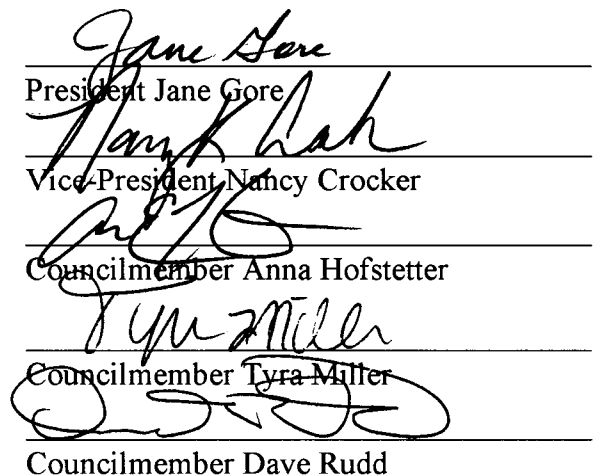 Jane Gore
President Jane Gore
Nancy K
Vice-President Nancy Crocker
Councilmember Anna Hofstetter
Tyra Miller
Councilmember Tyra Miller
Councilmember Dave Rudd